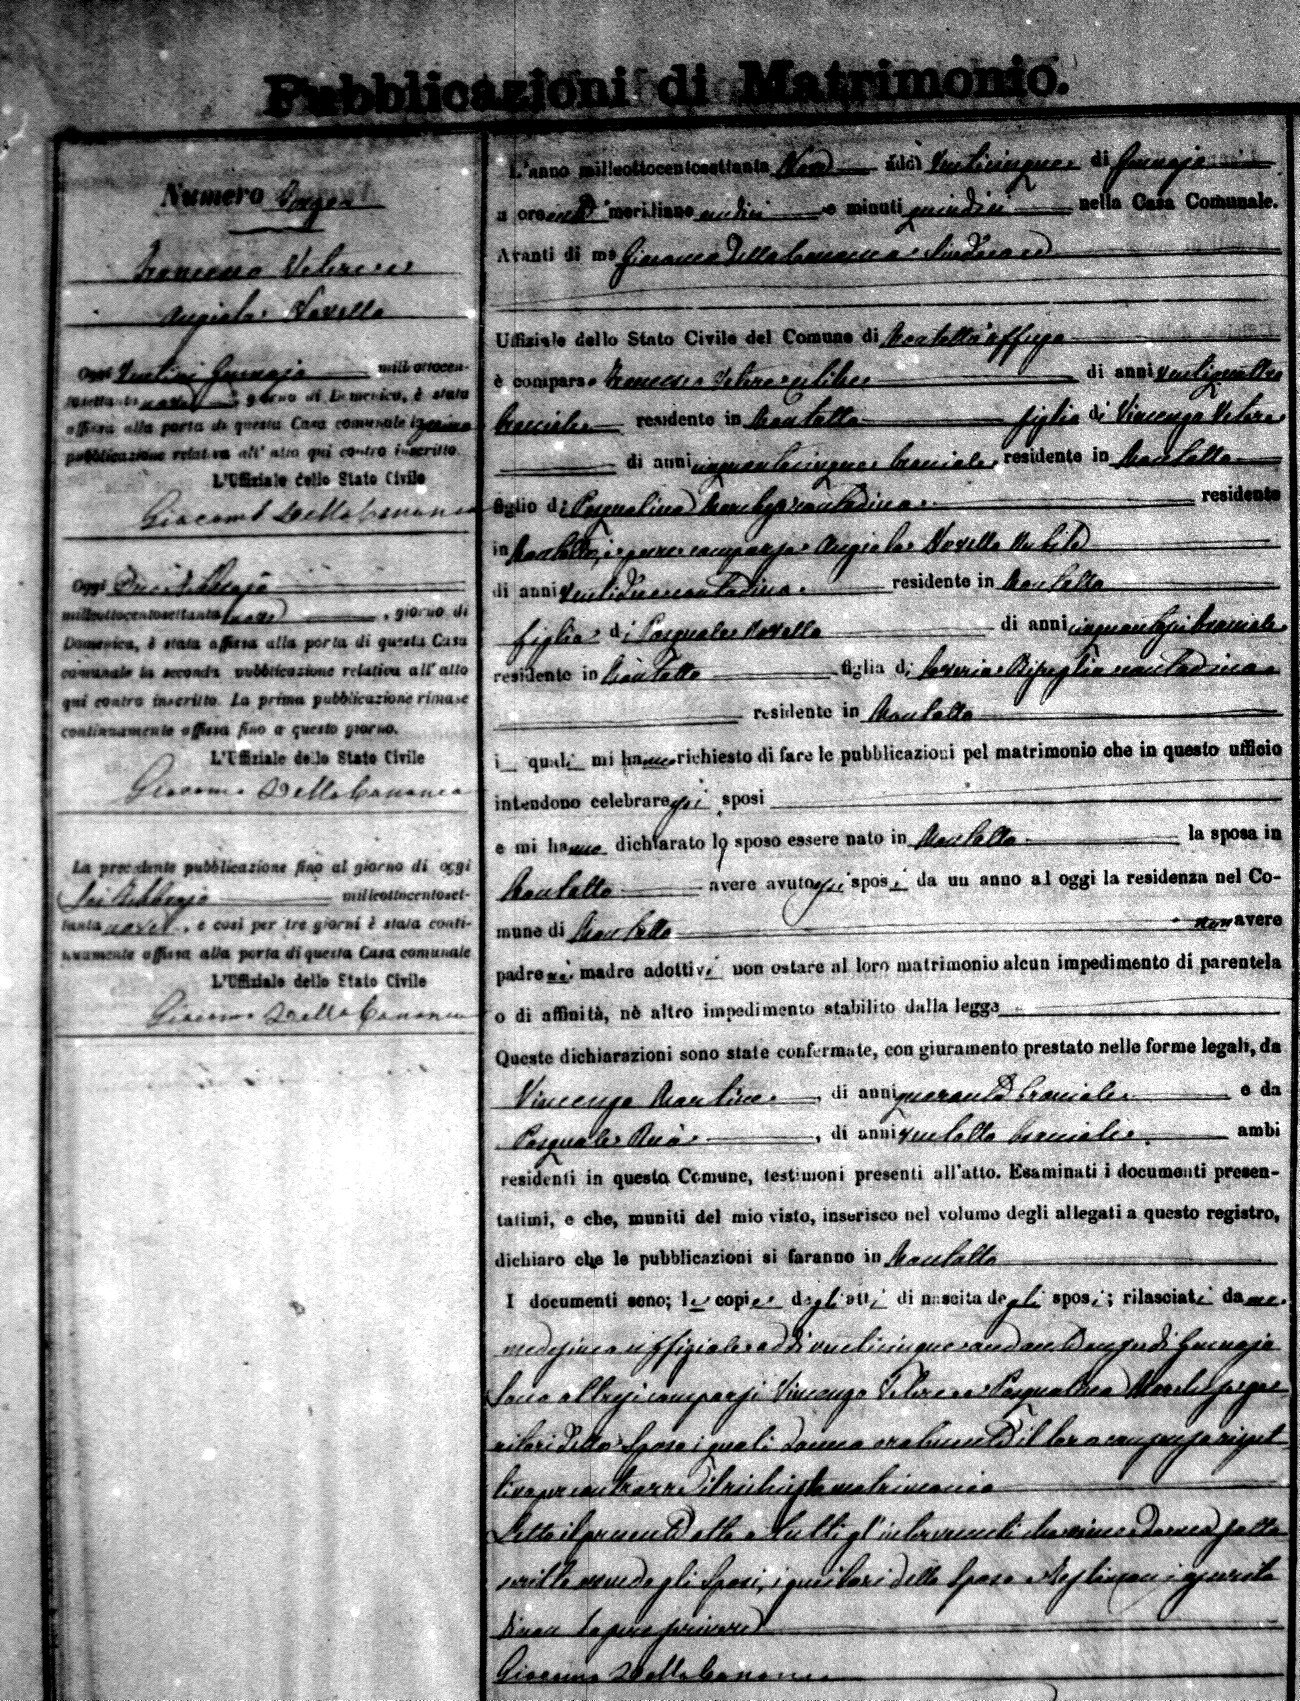 Pubblicazioni di Matrimonio.
Numero
Francesco Vetere e
Angiola Novello
Oggi Gennajo milleottocen-
tosettanta nove, giorno di Domenica, è stata
affissa alla porta di questa Casa comunale la prima
pubblicazione relativa all'atto qui contro inscritto.
L'Uffiziale dello Stato Civile
Giacomo Della Cananea
Oggi Due Febbrajo
milleottocentosettanta nove, giorno di
Domenica, è stata affissa alla porta di questa Casa
comunale la seconda pubblicazione relativa all'atto
qui contro inscritto. La prima pubblicazione rimase
continuamente affissa fino a questo giorno.
L'Uffiziale dello Stato Civile
Giacomo Della Cananea
La precedente pubblicazione fino al giorno di oggi
Sei Febbrajo milleottocentoset-
tanta nove, e così per tre giorni è stata conti-
nuamente affissa alla porta di questa Casa comunale
L'Uffiziale dello Stato Civile
Giacomo Della Cananea
L'anno milleottocentosettanta Nove addì Venticinque di Gennajo
a ore meridiane e minuti quindici nella Casa Comunale.
Avanti di me Giacomo Della Cananea Sindaco
Uffiziale dello Stato Civile del Comune di Montalto Uffugo
è comparso Francesco Vetere celibe di anni ventiquattro
bracciale residente in Montalto figlio di Vincenzo Vetere
di anni cinquantacinque bracciale residente in Montalto
figlio di Pasqualina contadina residente
in Montalto, è pure comparsa Angiola Novello Nubile
di anni ventidue contadina residente in Montalto
figlia di Pasquale Novello di anni cinquantasei bracciale
residente in Montalto figlia di Saveria contadina
residente in Montalto
i quali mi hanno richiesto di fare le pubblicazioni pel matrimonio che in questo ufficio
intendono celebrare gli sposi
e mi hanno dichiarato lo sposo essere nato in Montalto la sposa in
Montalto avere avuto gli sposi da un anno al oggi la residenza nel Co-
mune di Montalto non avere
padre nè madre adottivi non ostare al loro matrimonio alcun impedimento di parentela
o di affinità, nè altro impedimento stabilito dalla legge
Queste dichiarazioni sono state confermate, con giuramento prestato nelle forme legali, da
Vincenzo Martino, di anni quaranta bracciale e da
Pasquale Ruà, di anni ventotto bracciale ambi
residenti in questo Comune, testimoni presenti all'atto. Esaminati i documenti presen-
tatimi, e che, muniti del mio visto, inserisco nel volume degli allegati a questo registro,
dichiaro che le pubblicazioni si faranno in Montalto
I documenti sono; le copie degli atti di nascita degli sposi; rilasciati da me
medesimo uffiziale addì venticinque andante mese di Gennajo
Sono altresì comparsi Vincenzo Vetere e Pasqualina ge=
nitori dello Sposo i quali danno oralmente il loro consenso rispet
tivo per contrarre il richiesto matrimonio
Letto il presente atto a tutti gl'intervenuti
gli Sposi, i genitori dello Sposo e Testimoni
di non sapere scrivere
Giacomo Della Cananea